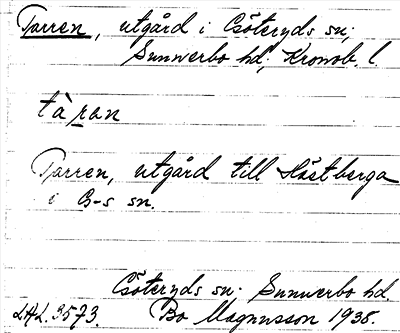 Tarren, utgård i Göteryds sn;
Sunnerbo hd, Kronob. l
tàran
Tarren, utgård till Hästberga
i G-s sn.
Göteryds sn. Sunnerbo hd.
LAL. 3573. Bo Magnusson 1935.